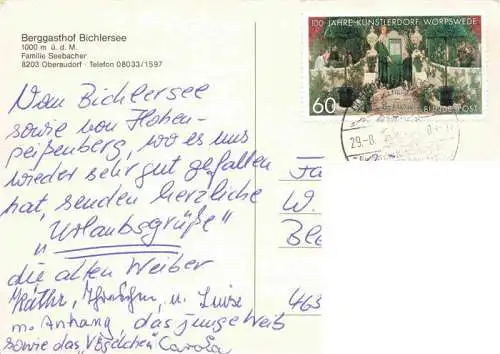 Berggasthof Bichlersee
1000 m ü. d. M.
Familie Seebacher
8203 Oberaudorf · Telefon 08033/1597
100 JAHRE KÜNSTLERDORF WORPSWEDE
60
DEUTSCHE BUNDESPOST
29.-8.
Vom Bichlersee
sowie von Hohen-
peißenberg, wo es uns
wieder sehr gut gefallen
hat, senden herzliche
"Urlaubsgrüße"
die alten Weiber
Käthe, u. Luise
m. Anhang, das junge Weib
sowie das "Vögelchen" Carola
Fa
W.
Bee
463